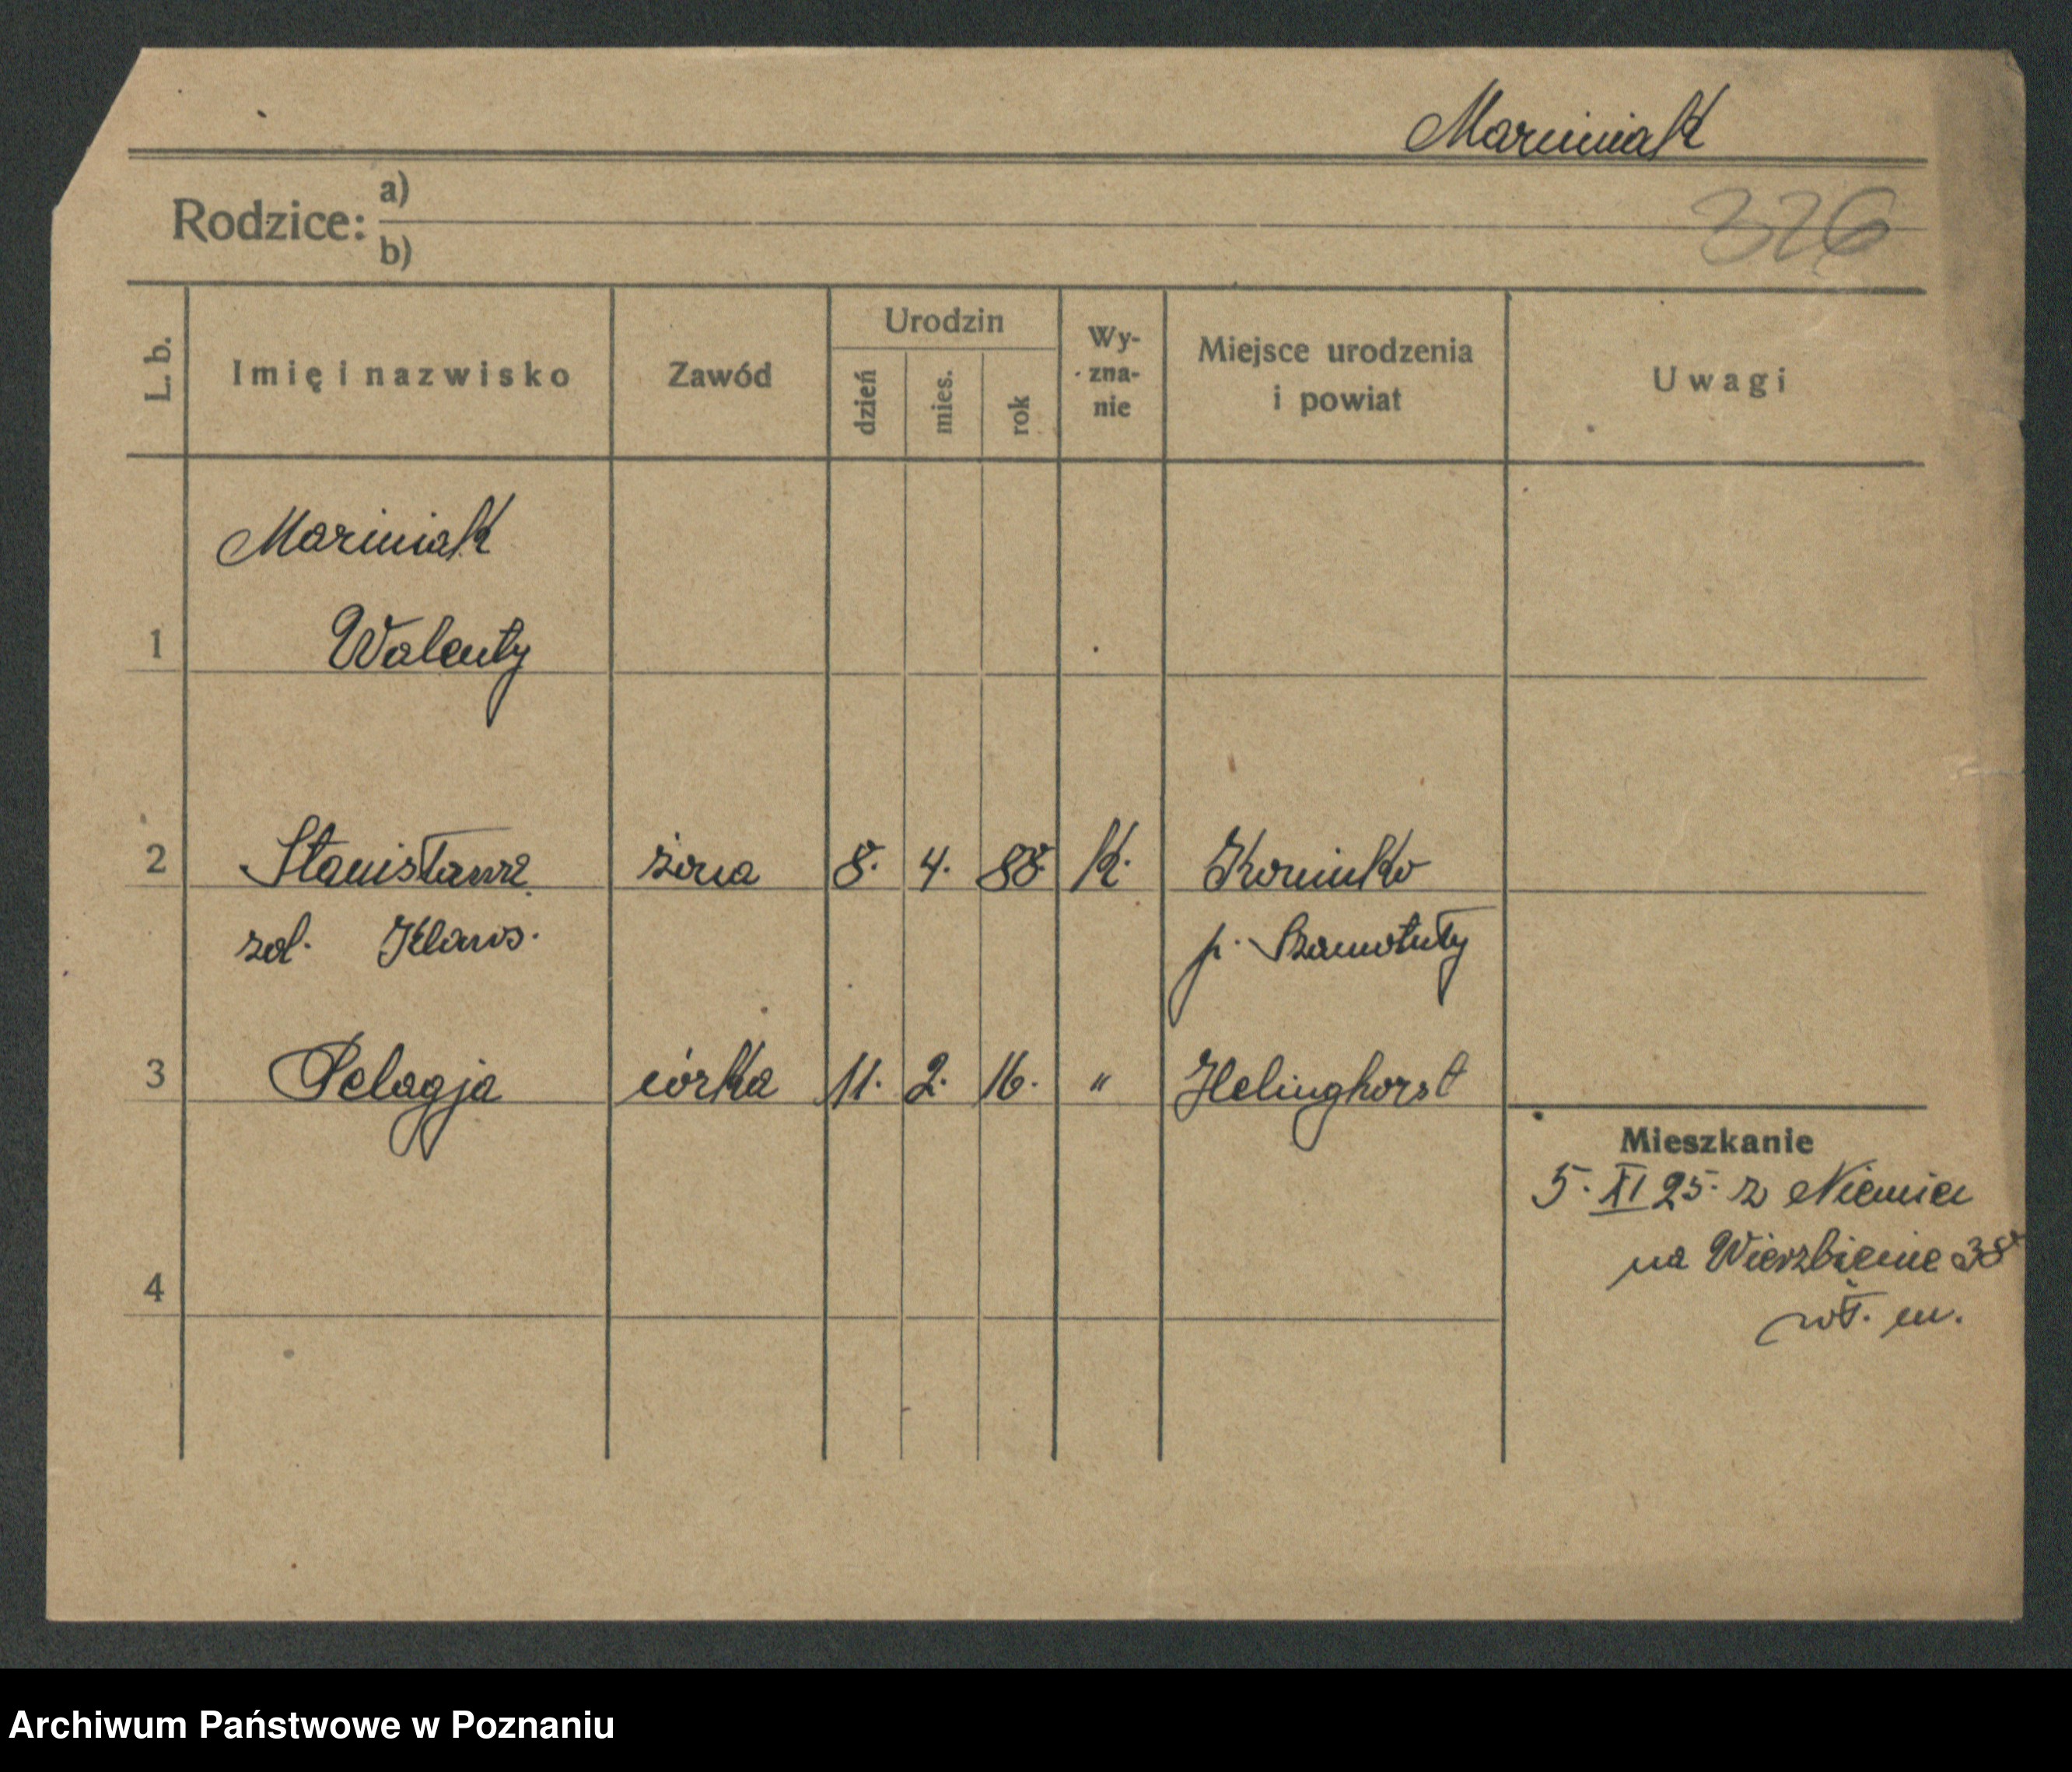 Marciniak
Rodzice: a)
b)
326
L. b.
Imię i nazwisko
Zawód
Urodzin
dzień
mies.
rok
Wy-
zna-
nie
Miejsce urodzenia
i powiat
Uwagi
Marciniak
1 Walenty
2 Stanisława żona 8. 4. 88 K. Koninko
zd. Klaws. p. Szamotuły
3 Pelagja córka 11. 2. 16. " Helinghorst
Mieszkanie
5. XI 25. z Niemiec
na Wierzbięcice 38
wł. m.
4
Archiwum Państwowe w Poznaniu